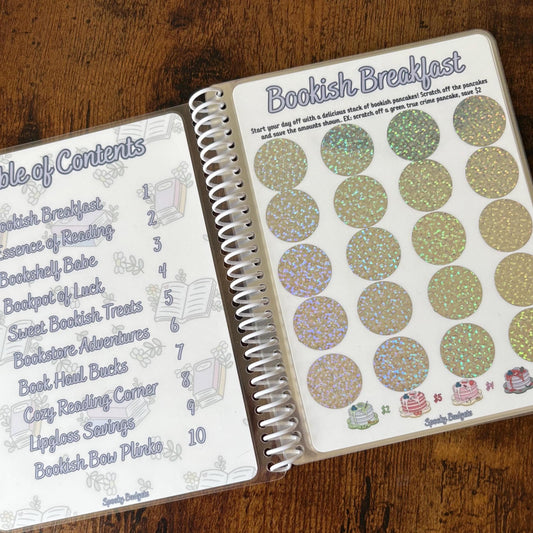 ble of Contents
Bookish Breakfast 1
Essence of Reading 2
Bookshelf Babe 3
Bookpot of Luck 4
Sweet Bookish Treats 5
Bookstore Adventures 6
Book Haul Bucks 7
Cozy Reading Corner 8
Lipgloss Savings 9
Bookish Bow Plinko 10
Spooky Budgets
Bookish Breakfast
Start your day off with a delicious stack of bookish pancakes! Scratch off the pancakes
and save the amounts shown. EX: scratch off a green true crime pancake, save $2
$2 $5 $4
Spooky Budgets